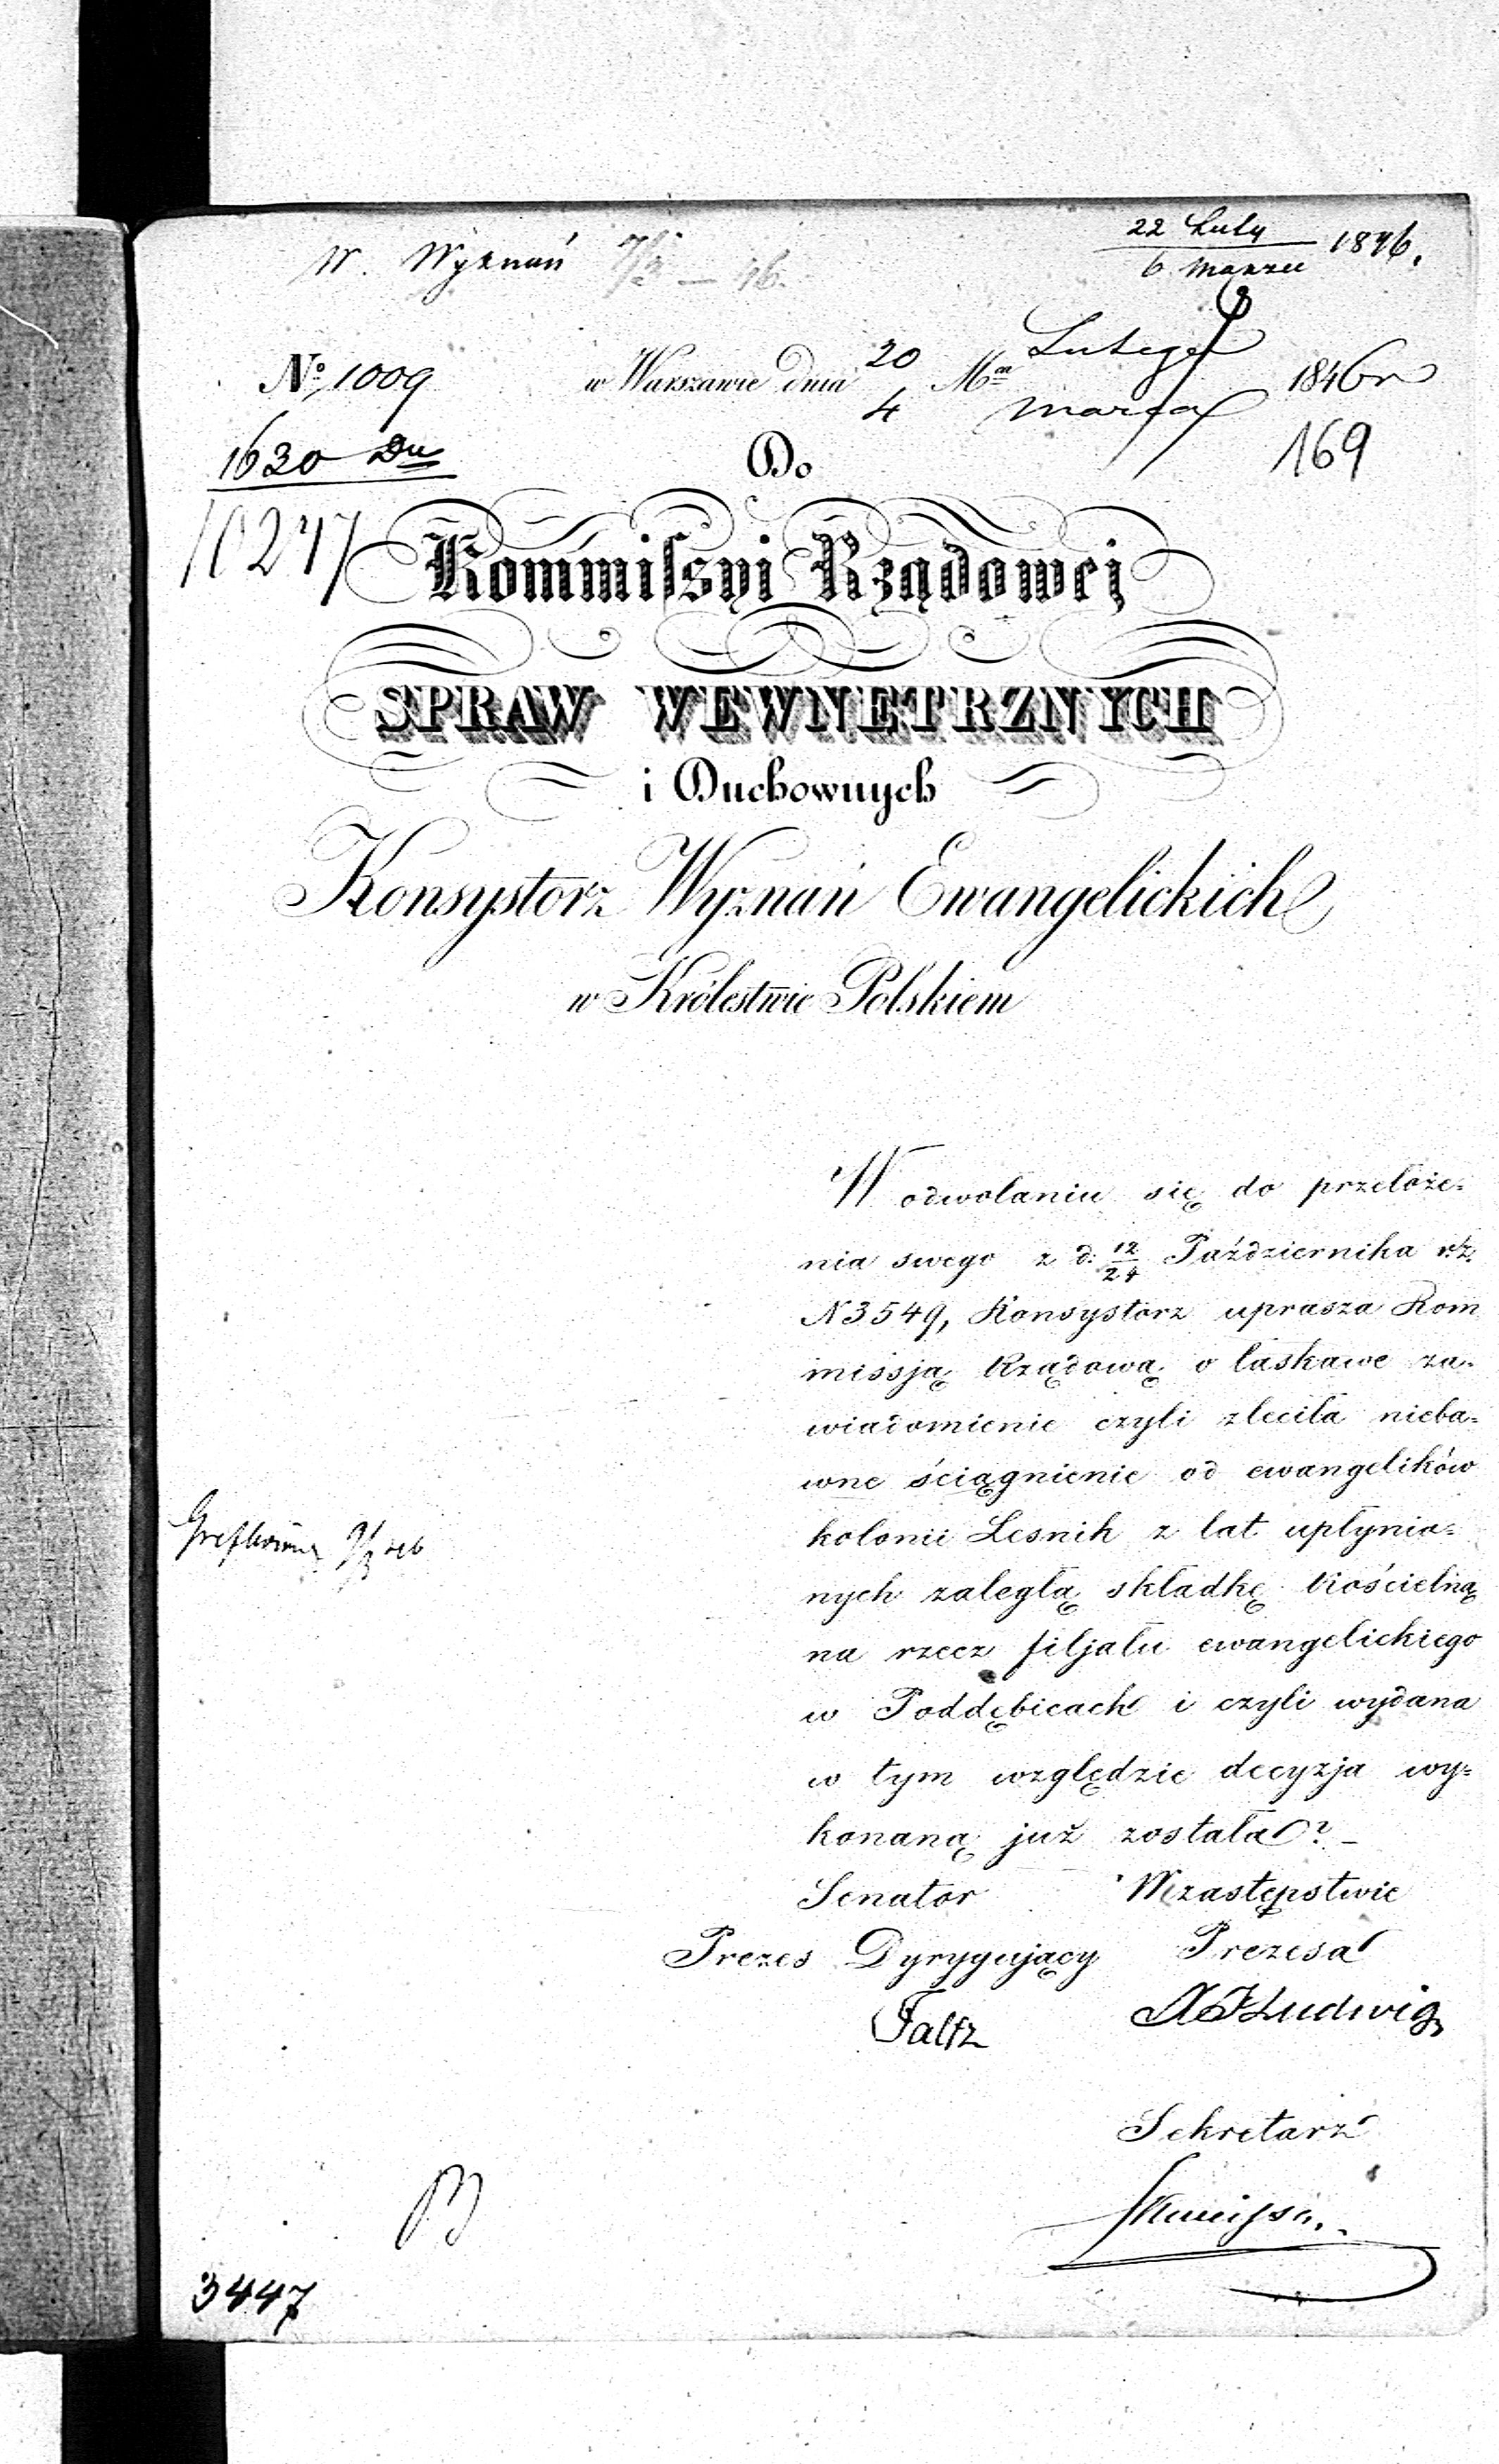 W. Wyznań 7/3 — 46.
22 Luty
6 Marzec 1846.
№ 1009
w Warszawie dnia 20 Mca Lutego 1846 r
4 Marca
1630 Du
169
Do
10247
Kommissyi Rządowej
SPRAW WEWNĘTRZNYCH
i Duchownych
Konsystorz Wyznań Ewangelickich
w Królestwie Polskiem
W odwołaniu się do przełoże=
nia swego z d: 12/24 Października r.z.
N 3549, Konsystorz uprasza Kom
missją Rządową o łaskawe za=
wiadomienie czyli zleciła nieba=
wne ściągnienie od ewangelików
kolonii Lesnik z lat upłynio=
nych zaległą składkę kościelną
na rzecz filjału ewangelickiego
w Poddębicach i czyli wydana
w tym względzie decyzja wy=
konaną już została? –
Senator W zastępstwie
Prezes Dyrygujący Prezesa
Faltz Ludwig
Sekretarz
3447